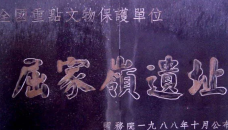 全國重點文物保護單位
屈家嶺遺址
國務院一九八八年十月公